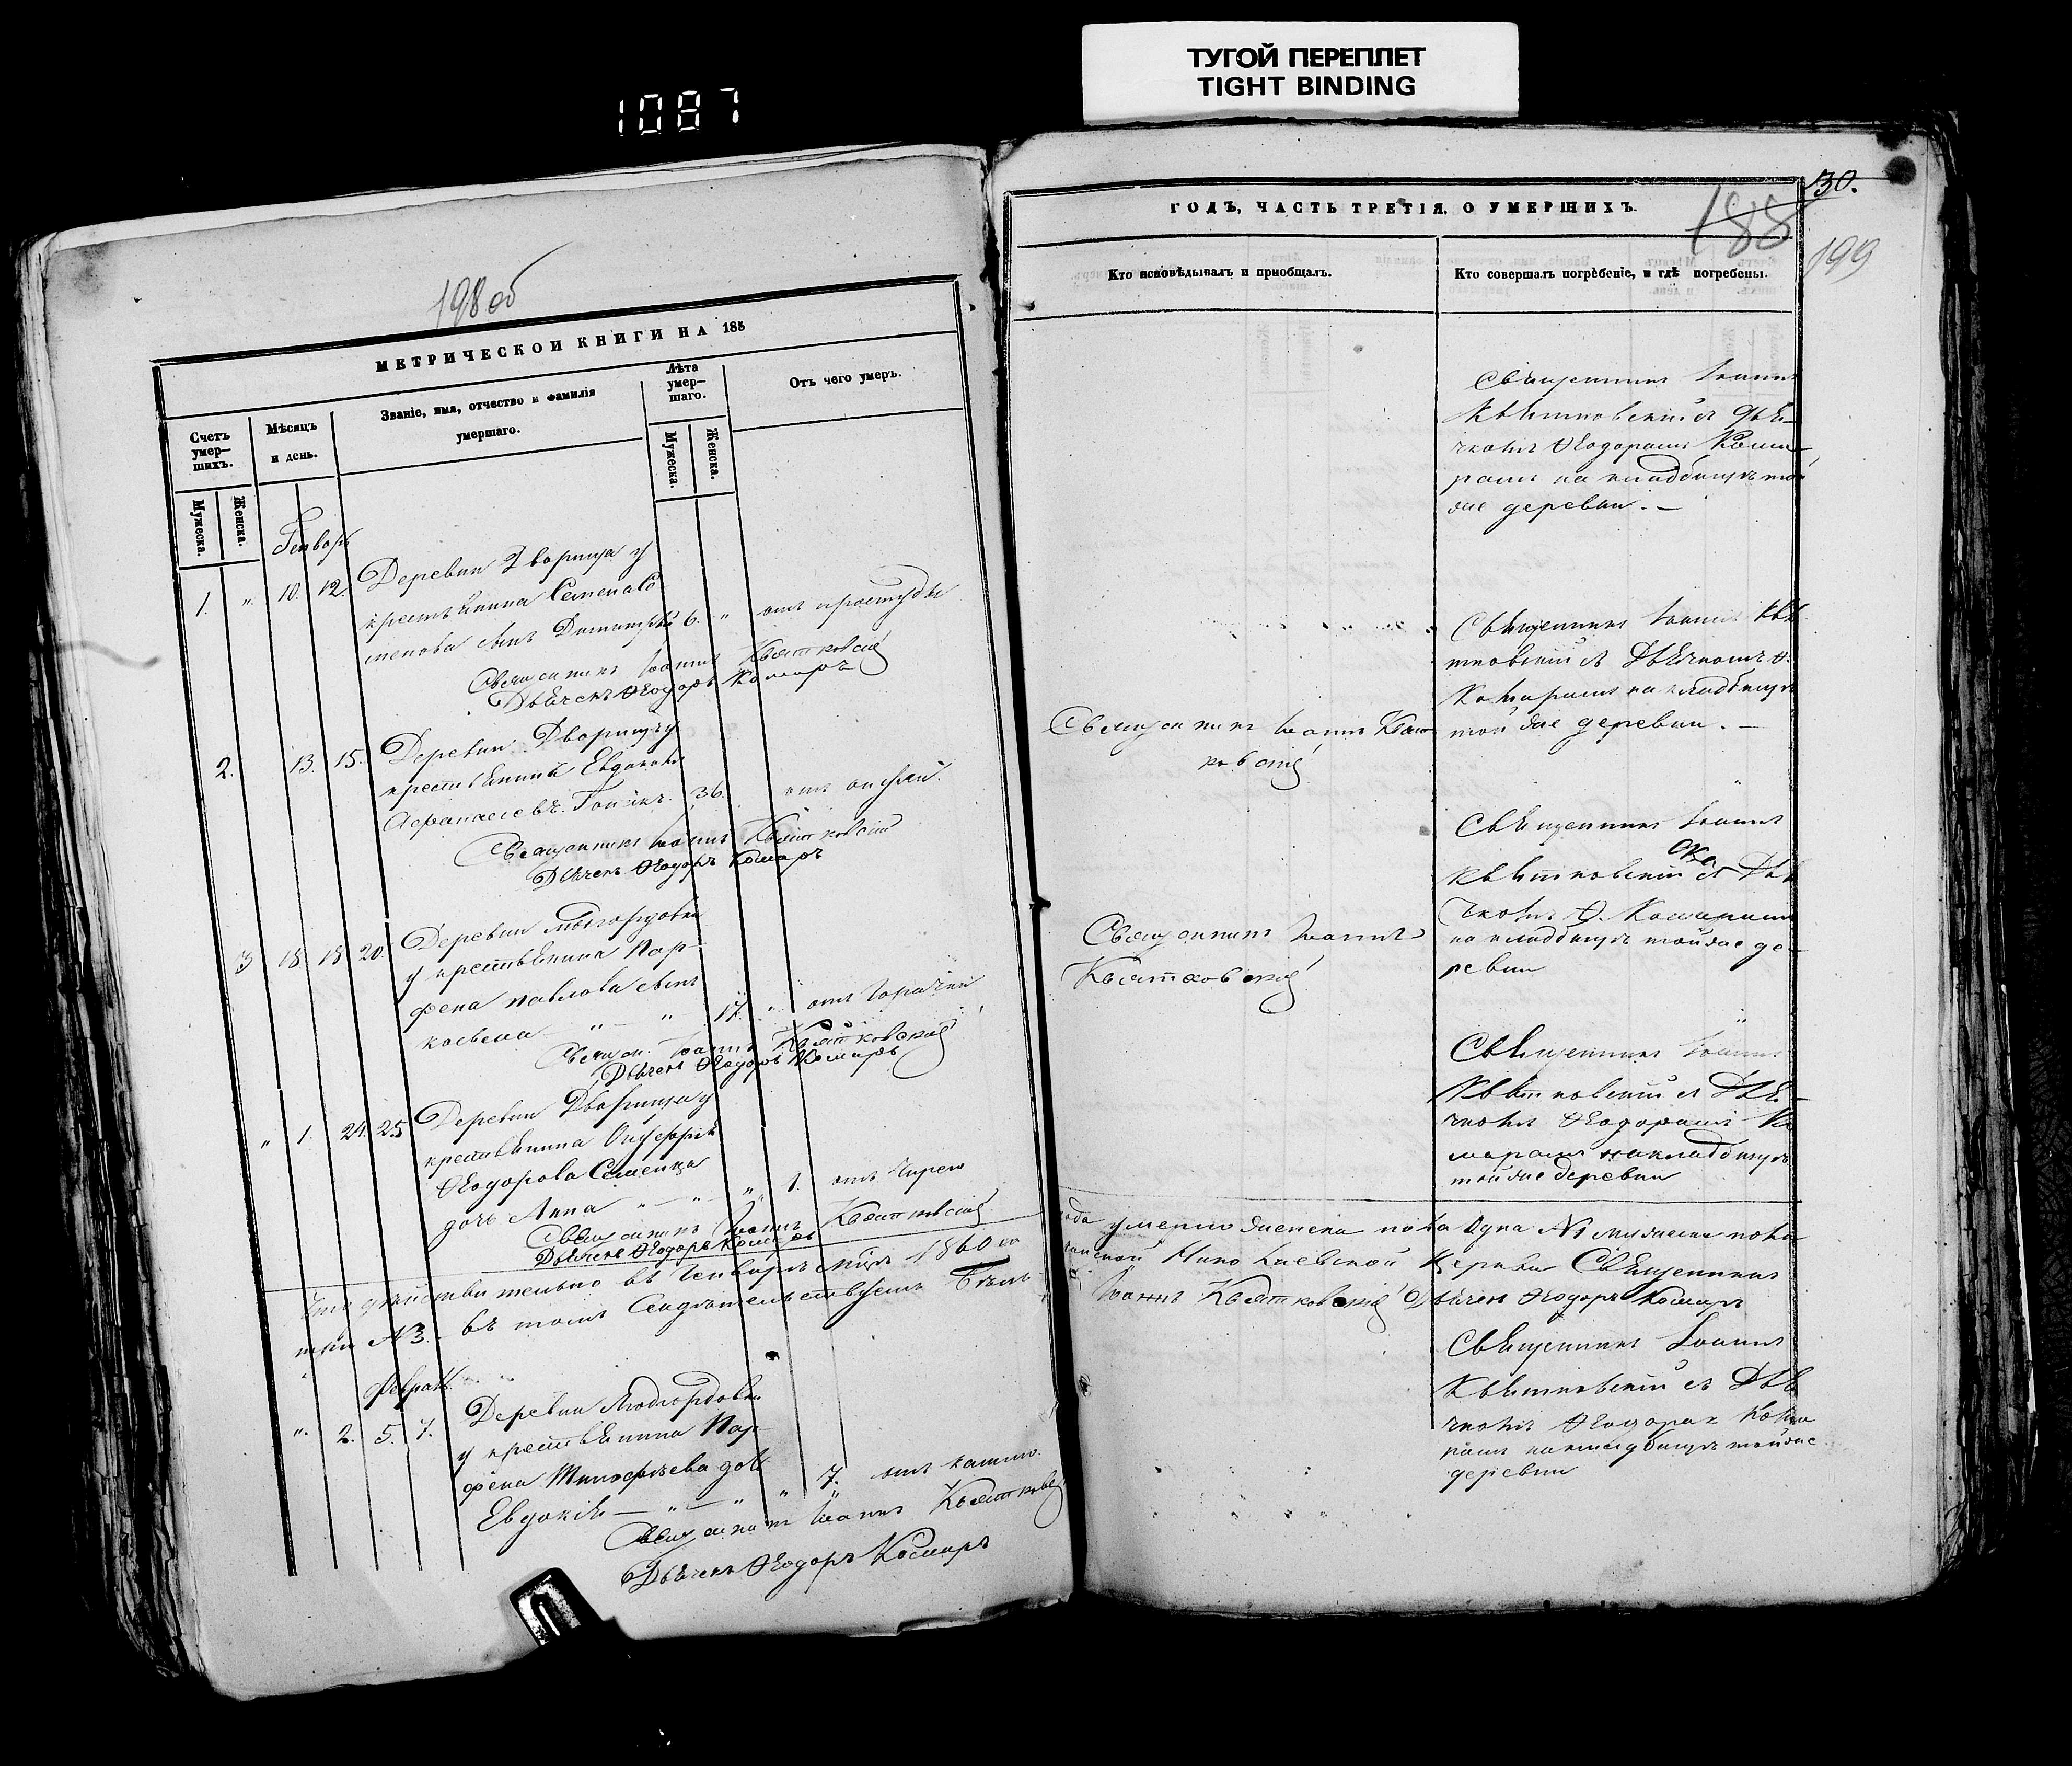 ТУГОЙ ПЕРЕПЛЕТ
TIGHT BINDING
1087
198 об
МЕТРИЧЕСКОЙ КНИГИ НА 185
Счетъ умер-шихъ.
Мѣсяцъ и день.
Званіе, имя, отчество и фамилія умершаго.
Лѣта умер-шаго.
Отъ чего умеръ.
Мужеска.
Женска.
Мужеска.
Женска.
Генварь
1. " 10. 12. Деревни Дворища у
крестьянина Семена Се
менова сынъ Димитрій 6. " отъ простуды
Священникъ Іоаннъ Квятковскій
Дьячекъ Ѳеодоръ Комаръ
2. 13. 15. Деревни Дворища
крестьянинъ Евдокимъ
Афанасіевъ 36. отъ
Священникъ Іоаннъ Квятковскій
Дьячекъ Ѳеодоръ Комаръ
3 18. 18 20. Деревни
у крестьянина Пар-
фена Павлова сынъ
17. " отъ горячки
Священ. Іоаннъ Квятковскій
Дьячекъ Ѳеодоръ Комаръ
" 1. 24. 25 Деревни Дворища у
крестьянина Онуфрія
Ѳеодорова Семенца
дочь Анна " " " 1. отъ
Священникъ Іоаннъ Квятковскій
Дьячекъ Ѳеодоръ Комаръ
Что дѣйствительно въ Генварѣ мцѣ 1860 го
три №3. въ томъ свидѣтельствуемъ
Февраль
". 2. 5. 7. Деревни
у крестьянина Пар-
фена Тимофѣева дочь
Евдокія " " " 7. отъ кашлю.
Священникъ Іоаннъ Квятковскій
Дьячекъ Ѳеодоръ Комаръ
30.
ГОДЪ, ЧАСТЬ ТРЕТІЯ, О УМЕРШИХЪ.
188
199
Кто исповѣдывалъ и пріобщалъ.
Кто совершалъ погребеніе, и гдѣ погребены.
Священникъ Іоаннъ
Квятковскій съ Дья-
чкомъ Ѳеодоромъ Кома
ромъ на кладбищѣ той
же деревни. —
Священникъ Іоаннъ Квя
тковскій съ Дьячкомъ Ѳ.
Комаромъ на кладбищѣ
той же деревни. —
Священникъ Іоаннъ Квят
ковскій
Священникъ Іоаннъ
Квятковскій съ Дья
чкомъ Ѳ. Комаромъ
на кладбищѣ той же де-
ревни
Священникъ Іоаннъ
Квятковскій
Священникъ Іоаннъ
Квятковскій съ Дья-
чкомъ Ѳеодоромъ Ко
маромъ на кладбищѣ
той же деревни
года умерло женска пола одна №1 мужеска пола
Николаевской Церкви Священникъ
Іоаннъ Квятковскій Дьячекъ Ѳеодоръ Комаръ
Священникъ Іоаннъ
Квятковскій съ Дья
чкомъ Ѳеодоромъ Кома
ромъ на кладбищѣ той же
деревни